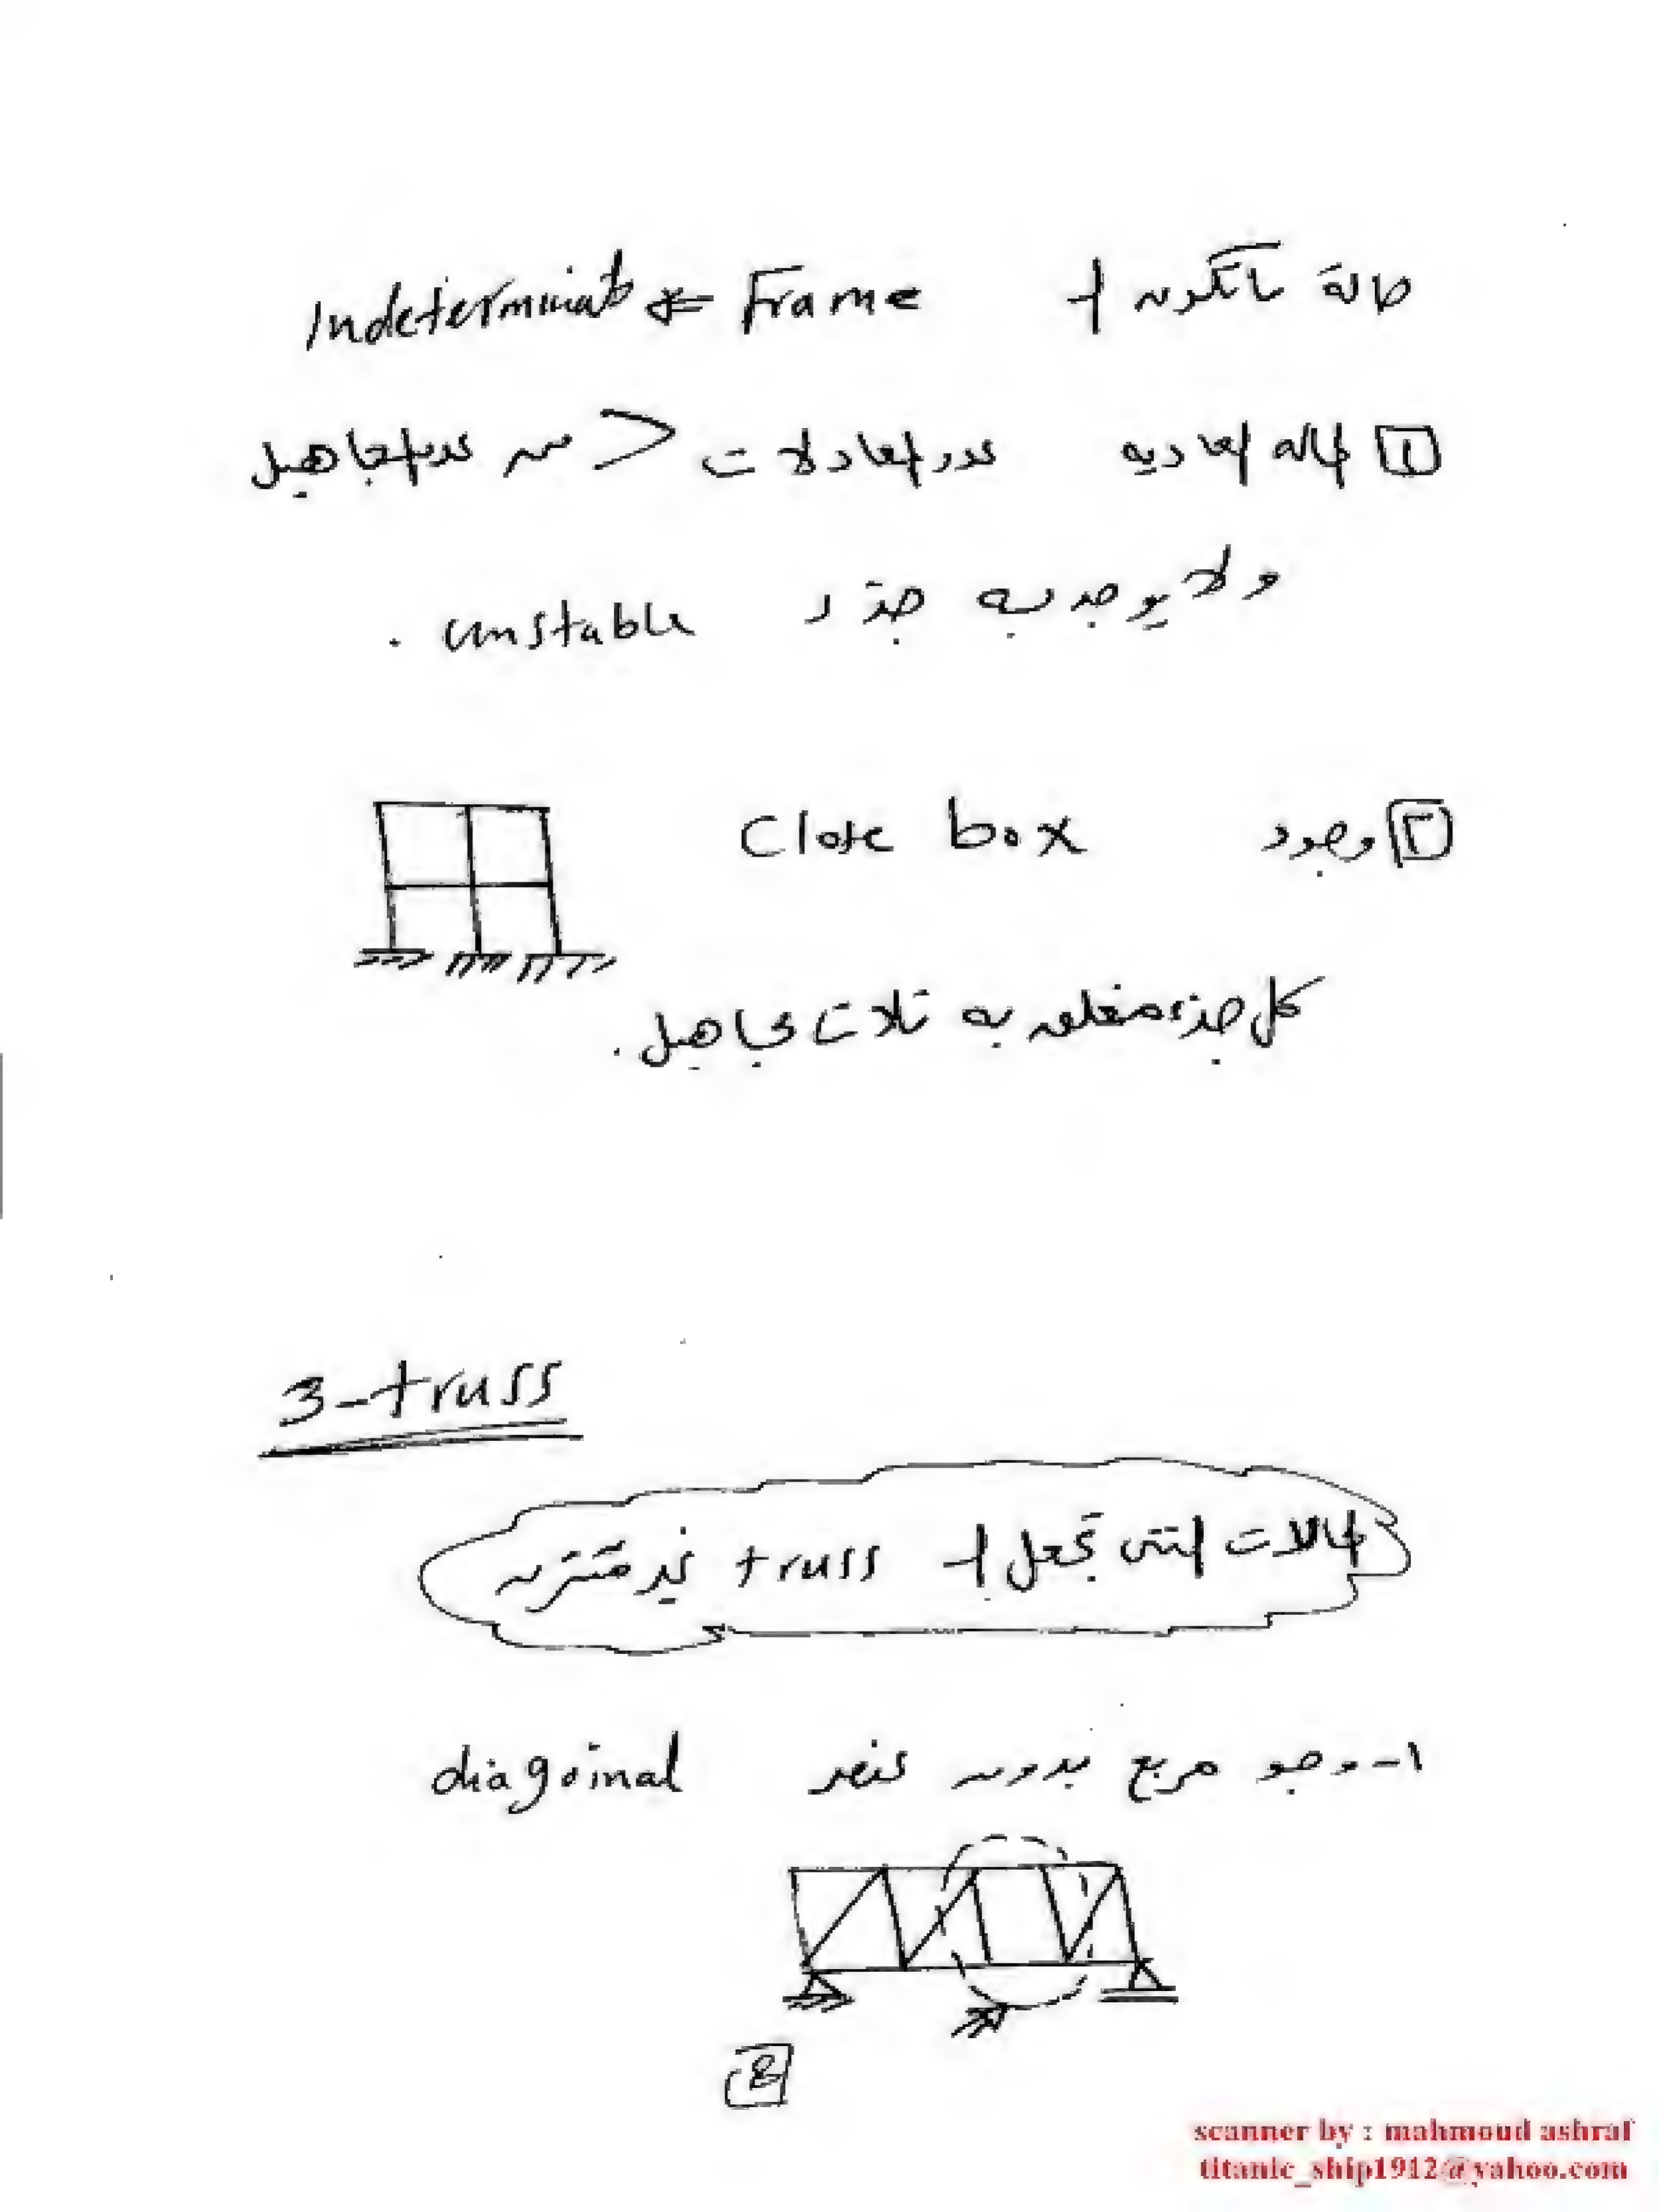 حالة ماتكون ال Frame ⇐ Indeterminate
١ الحاله العاديه عدد المعادلات > من عدد المجاهيل
ولا يوجد به جزء unstable .
٢ وجود Close box
كل جزء مغلق به تلات مجاهيل .
3-truss
الحالات التى تجعل ال truss غير متزن
١- وجو مربع بدون عنصر diagoinal
scanner by : mahmoud ashraf
titanic_ship1912@yahoo.com